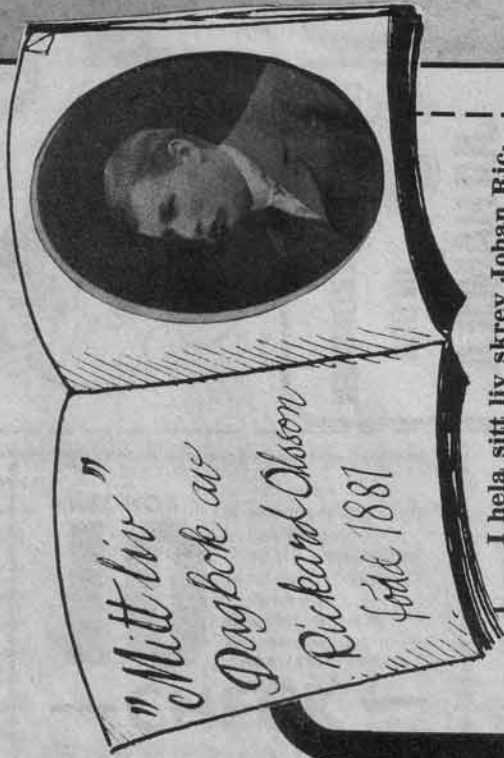 "Mitt liv"
Dagbok av
Rickard Olsson
född 1881
I hela sitt liv skrev Johan Ric-